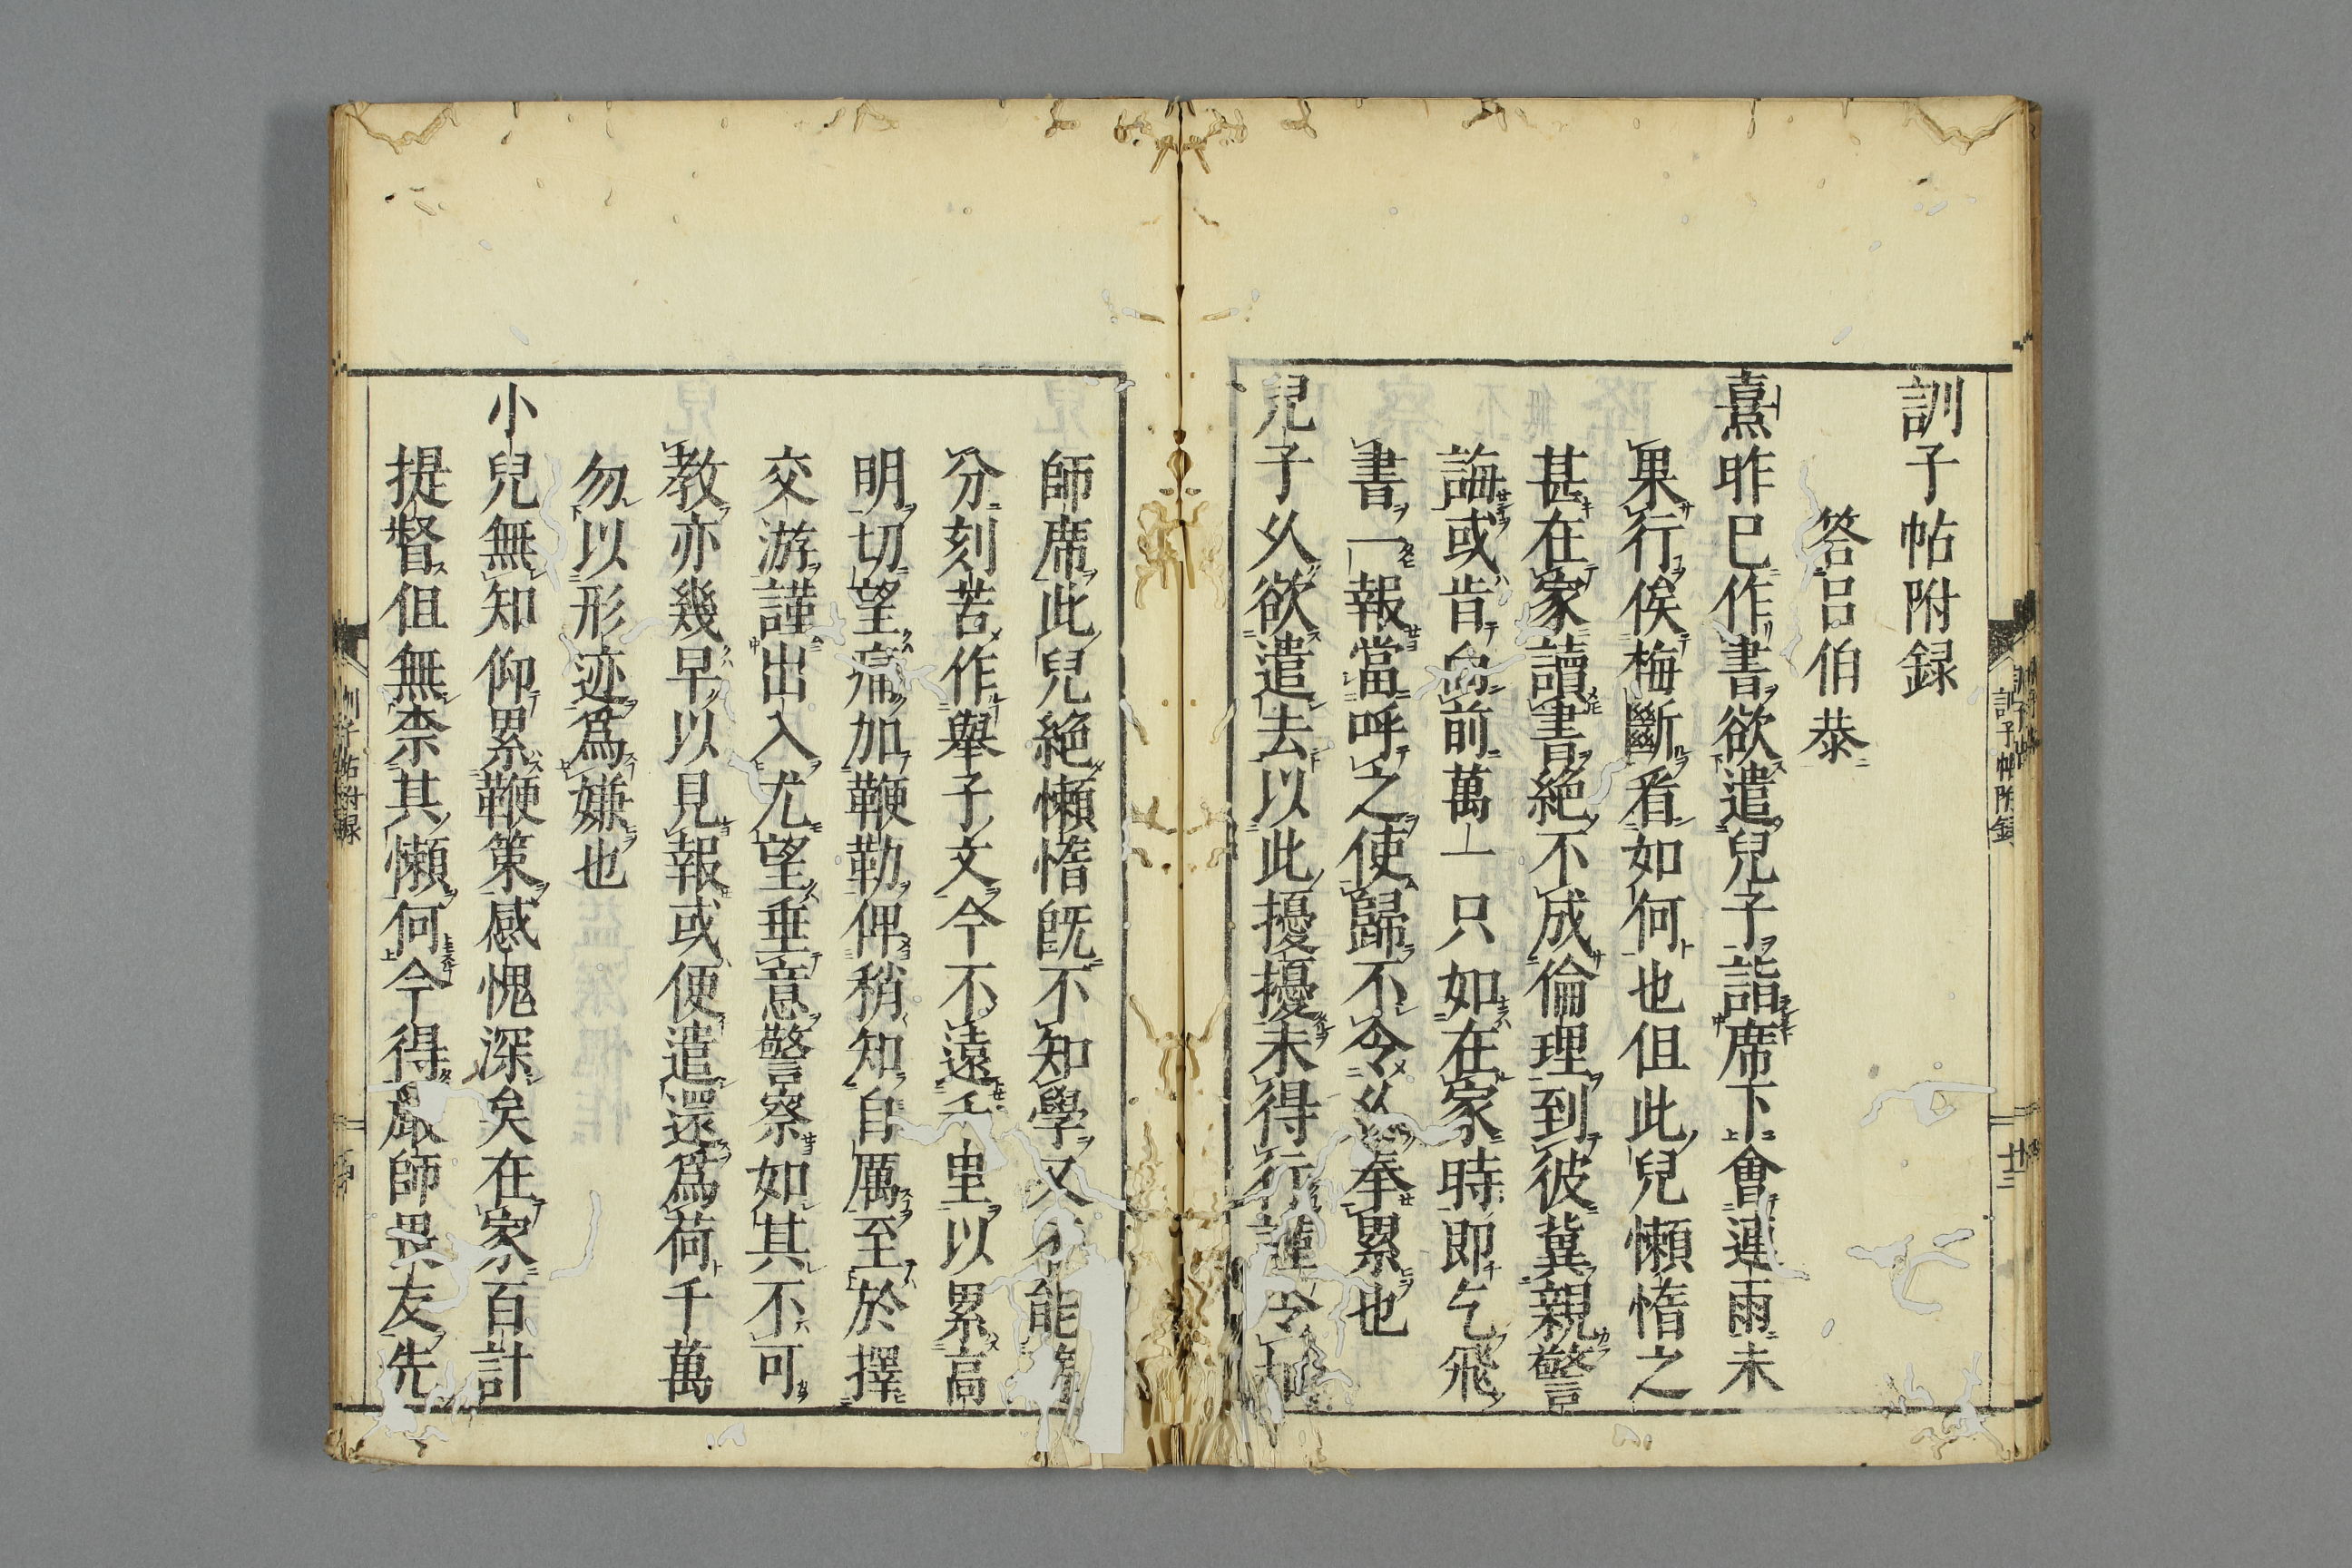 訓子帖附録
答呂伯恭
熹昨已作書欲遣兒子詣席下會連雨未
果行俟梅斷看如何也但此兒懶惰之
甚在家讀書絶不成倫理到彼冀親警
誨或肯向前萬一只如在家時即乞飛
書一報當呼之使歸不令久奉累也
兒子久欲遣去以此擾擾未得行謹令
師席此兒絶懶惰既不知學又不能
分刻苦作舉子文今不遠千里以累高
明切望痛加鞭勒俾稍知自厲至於擇
交游謹出入尤望垂意警察如其不可
教亦幾早以見報或便遣還爲荷千萬
勿以形迹爲嫌也
小兒無知仰累鞭策感愧深矣在家百計
提督但無柰其懶何今得嚴師畏友先
訓子帖附録
廿三
訓子帖附録